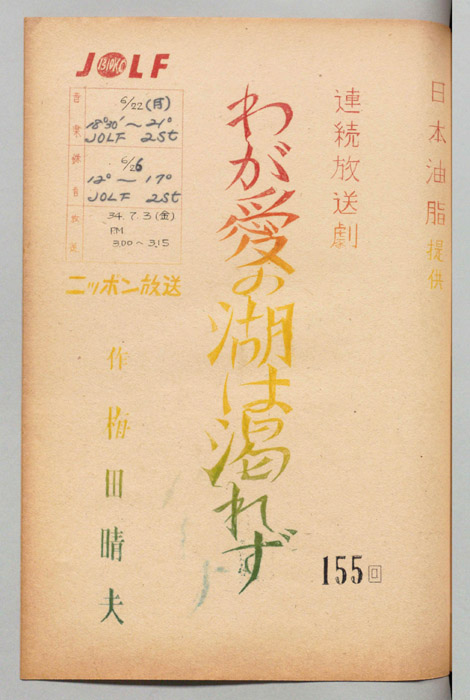 日本油脂 提供
連続放送劇
わが愛の湖は渇れず
155回
JOLF
1310KC
6/22(月)
18°30'〜21°
JOLF 2St
録音
6/26
12°〜17°
JOLF 2St
放送
34.7.3(金)
PM
3.00〜3.15
ニッポン放送
作 梅田晴夫